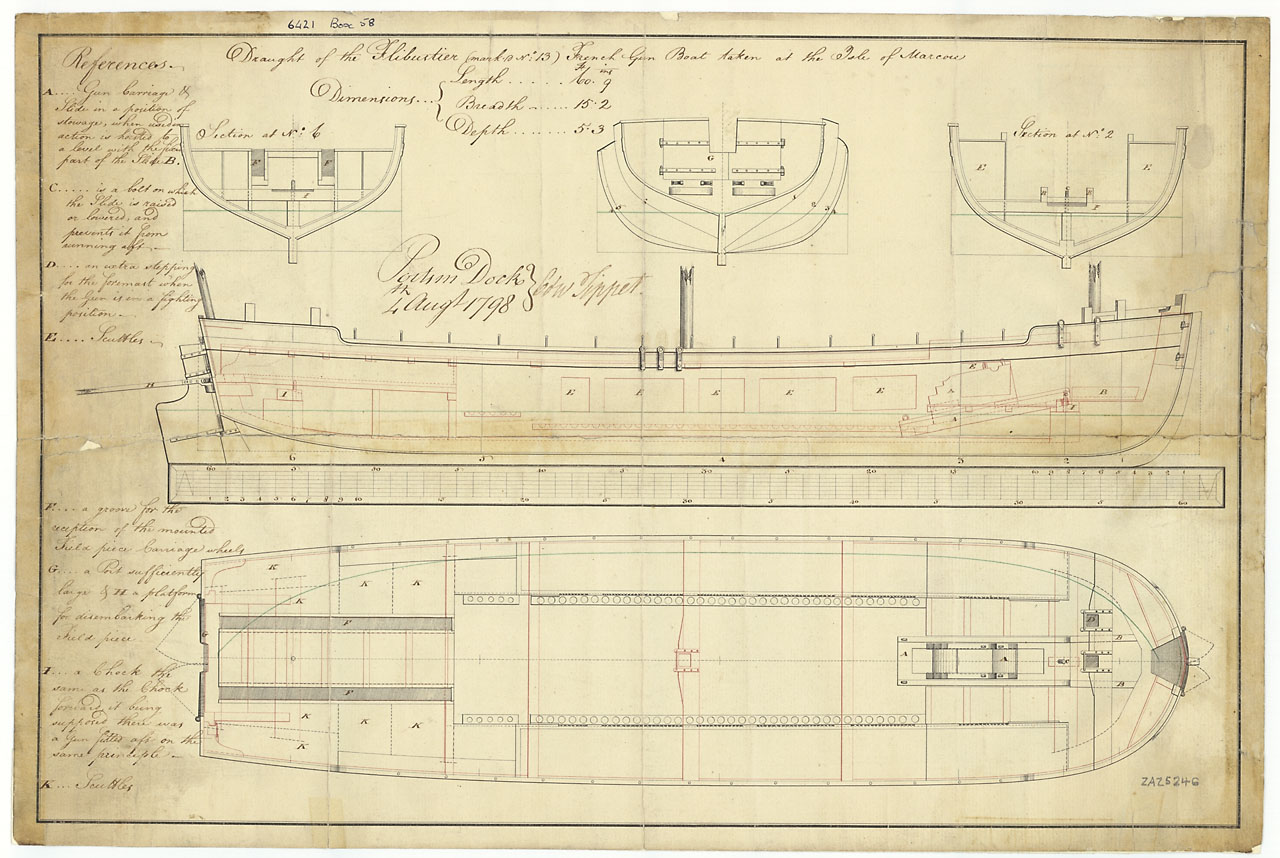 6421 Box 58
Draught of the Flibustier (mark'd No. 13) French Gun Boat taken at the Isle of Marcou
Dimensions...
Ft ins
Length ....... 60. 9
Breadth ....... 15. 2
Depth ....... 5. 3
References.
A.... Gun Carriage &
Slide in a position of
stowage, when used in
action is hoisted to
a level with the fore
part of the Slide B.
C..... is a bolt on which
the Slide is raised
or lowered, and
prevents it from
running aft
D.... an extra stepping
for the foremast when
the Gun is in a fighting
position
E.... Scuttles
F... a groove for the
reception of the mounted
Field piece Carriage wheels
G... a Port sufficiently
large & H a platform
for disembarking the
Field piece
I... a Chock the
same as the Chock
forward, it being
supposed there was
a Gun fitted aft on the
same principle
K... Scuttles
Section at No. 6
F F
I
G
Section at No. 2
E E
B B
C
I
Portsm Dock
4th Augt 1798
Edw Tippet
H
I
E E E E E
A A A
B
C
I
6 5 4 3 2 1
K K K
K K K
F
F
A A
B
B
C
D
K K K
K K
ZAZ5246